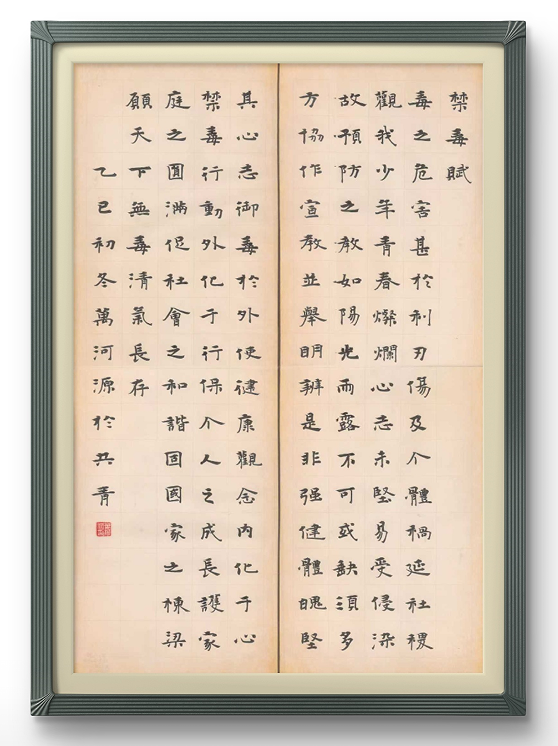 禁毒賦
毒之危害甚於利刃傷及个體禍延社稷
觀我少年青春燦爛心志未堅易受侵染
故預防之教如陽光雨露不可或缺須多
方協作宣教並舉明辨是非强健體魄堅
其心志御毒於外使健康觀念内化于心
禁毒行動外化于行保个人之成長護家
庭之圓滿促社會之和諧固國家之棟梁
願天下無毒清氣長存
乙巳初冬萬河源於共青